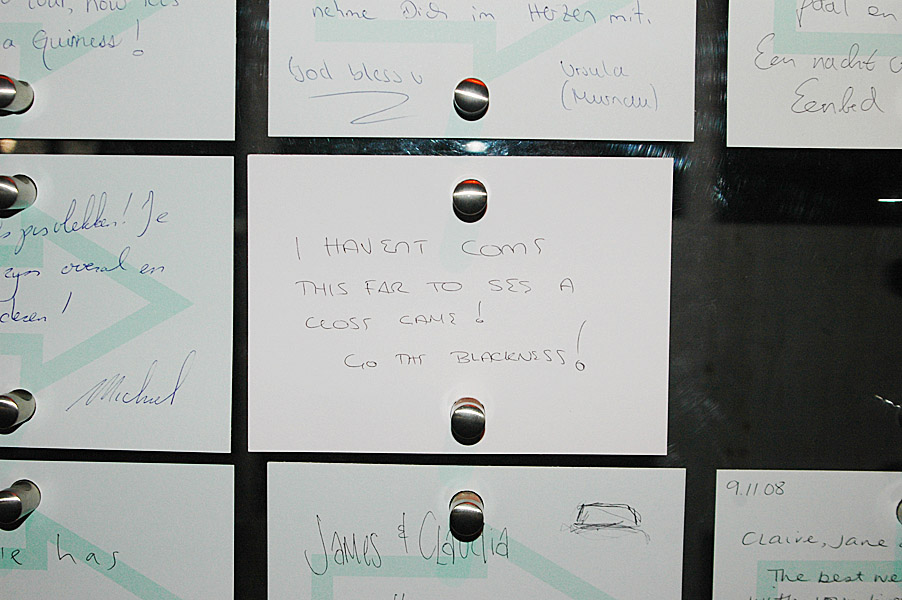 a Guinness!
nehme Dich im Herzen mit.
God bless u
Ursula
(Murnau)
Een nacht
Eenbed
! Je
overal en
Michiel
I HAVENT COME
THIS FAR TO SEE A
CLOSE GAME!
GO THE BLACKNESS!
has
JAMES & CLAUDIA
9.11.08
Claire, Jane
The best